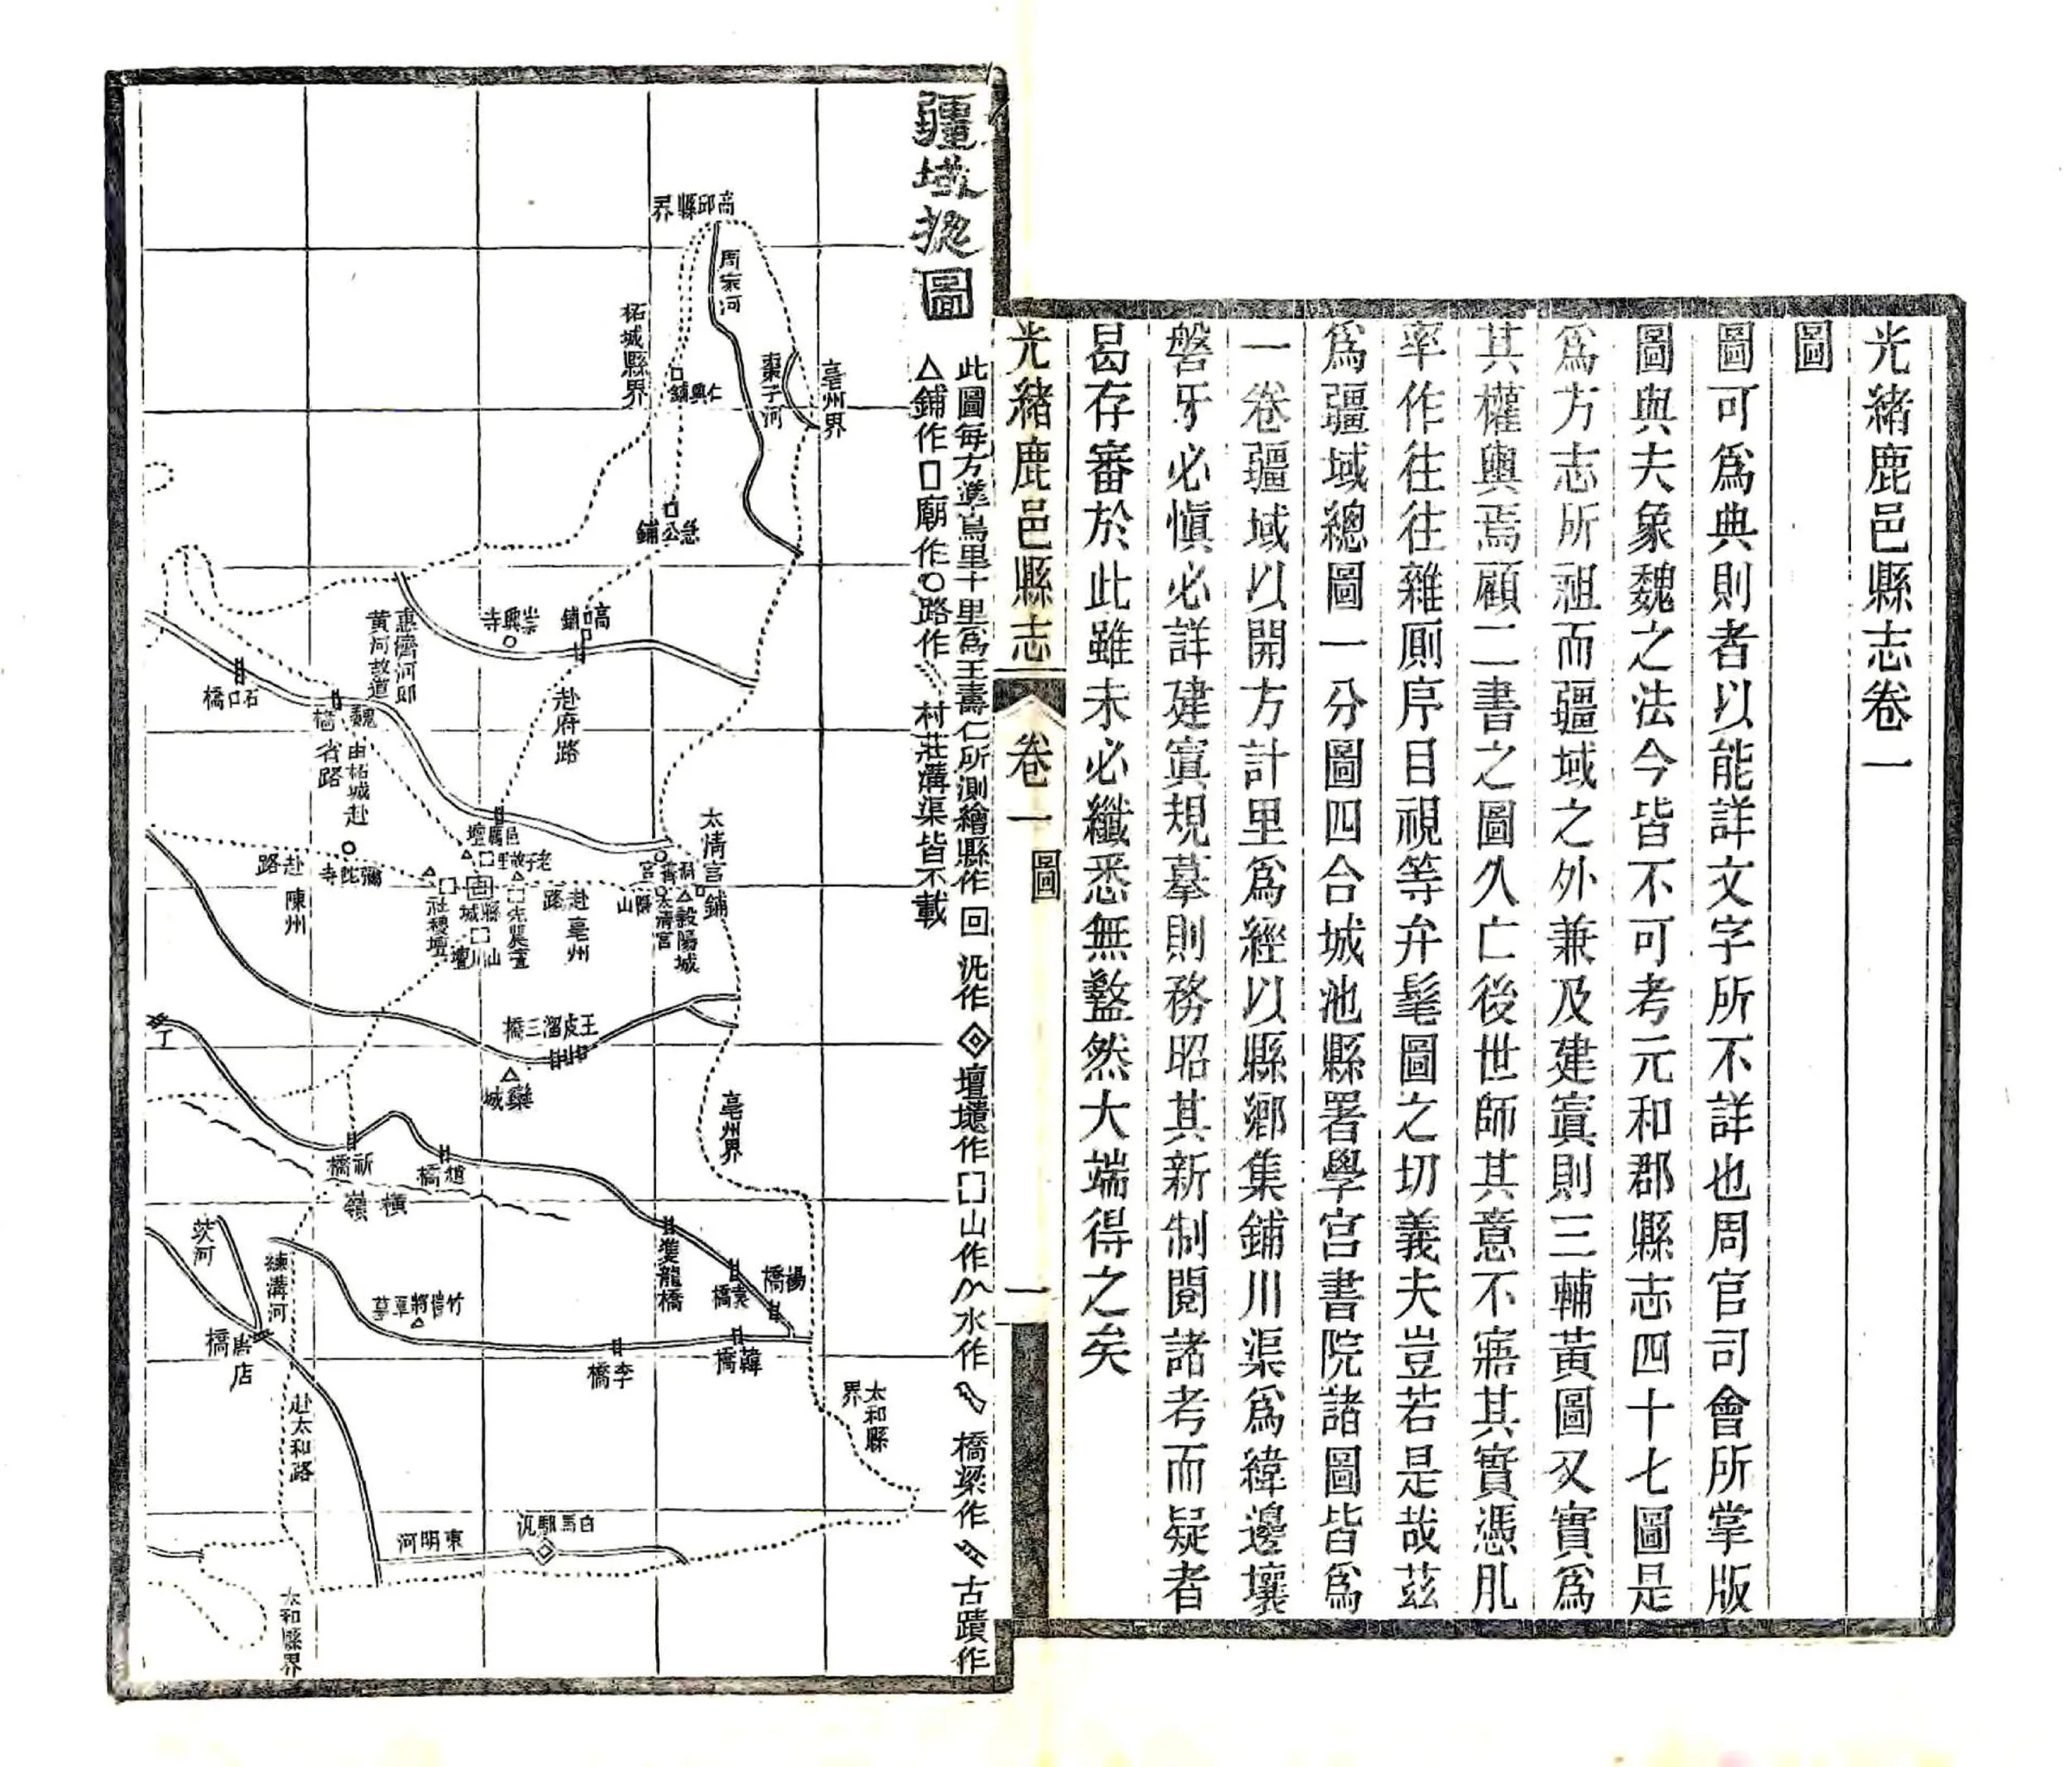 光緒鹿邑縣志卷一
圖
圖可爲典則者以能詳文字所不詳也周官司會所掌版
圖與夫象魏之法今皆不可考元和郡縣志四十七圖是
爲方志所祖而疆域之外兼及建寘則三輔黃圖又實爲
其權輿焉顧二書之圖久亡後世師其意不寤其實憑肊
率作往往雜厠序目視等弁髦圖之切義夫豈若是哉茲
爲疆域總圖一分圖四合城池縣署學宮書院諸圖皆爲
一卷疆域以開方計里爲經以縣鄉集鋪川渠爲緯邊壤
磐牙必愼必詳建寘規摹則務昭其新制閱諸考而疑者
曷存審於此雖未必纖悉無盭然大端得之矣
光緒鹿邑縣志
卷一
圖
一
疆域揔圖
此圖每方準鳥里十里爲王壽仁所測繪縣作回汛作◇壇壝作□山作水作橋梁作古蹟作
△鋪作□廟作○路作村莊溝渠皆不載
商邱縣界
周家河
柘城縣界
仁興鋪
棗子河
亳州界
急公鋪
惠濟河卽
黃河故道
崇興寺
高口鋪
石口橋
魏橋
由柘城赴
省路
赴府路
太清宮鋪
邑厲壇
老子故里
彌陀寺
赴陳州路
社稷壇
縣城
先農壇
山川壇
赴亳州路
洞霄宮
隱山
太清宮
穀陽城
王皮溜三橋
欒城
亳州界
祈橋
趙橋
橫嶺
茨河
練溝河
雙龍橋
袁橋
楊橋
竹書將軍墓
唐店橋
李橋
韓橋
太和縣界
赴太和路
東明河
白馬驛汛
太和縣界